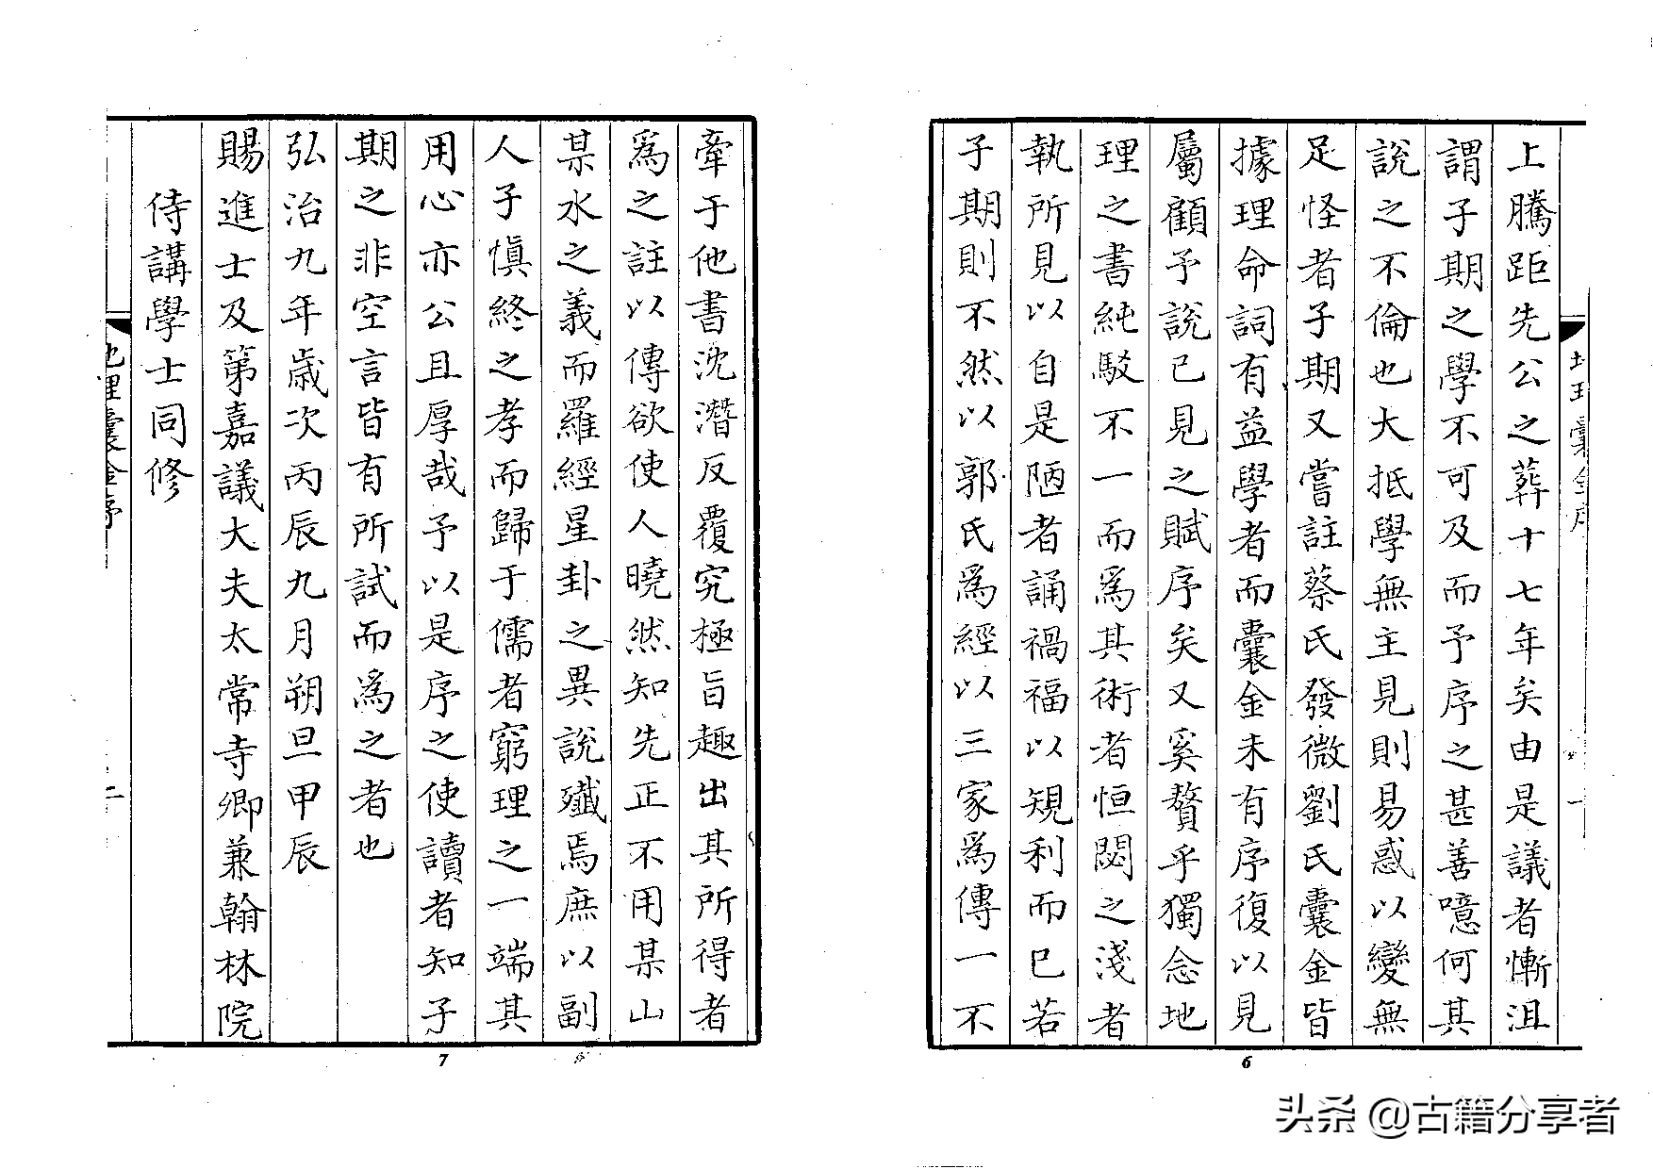 地理囊金序
上騰距先公之葬十七年矣由是議者慚沮
謂子期之學不可及而予序之甚善噫何其
說之不倫也大抵學無主見則易惑以變無
足怪者子期又嘗註蔡氏發微劉氏囊金皆
據理命詞有益學者而囊金未有序復以見
屬顧予說已見之賦序矣又奚贅乎獨念地
理之書純駁不一而爲其術者恒閟之淺者
執所見以自是陋者誦禍福以規利而已若
子期則不然以郭氏爲經以三家爲傳一不
6
牽于他書沈潛反覆究極旨趣出其所得者
爲之註以傳欲使人曉然知先正不用某山
某水之義而羅經星卦之異說殲焉庶以副
人子慎終之孝而歸于儒者窮理之一端其
用心亦公且厚哉予以是序之使讀者知子
期之非空言皆有所試而爲之者也
弘治九年歲次丙辰九月朔旦甲辰
賜進士及第嘉議大夫太常寺卿兼翰林院
侍講學士同修
地理囊金序
二
7
头条 @古籍分享者